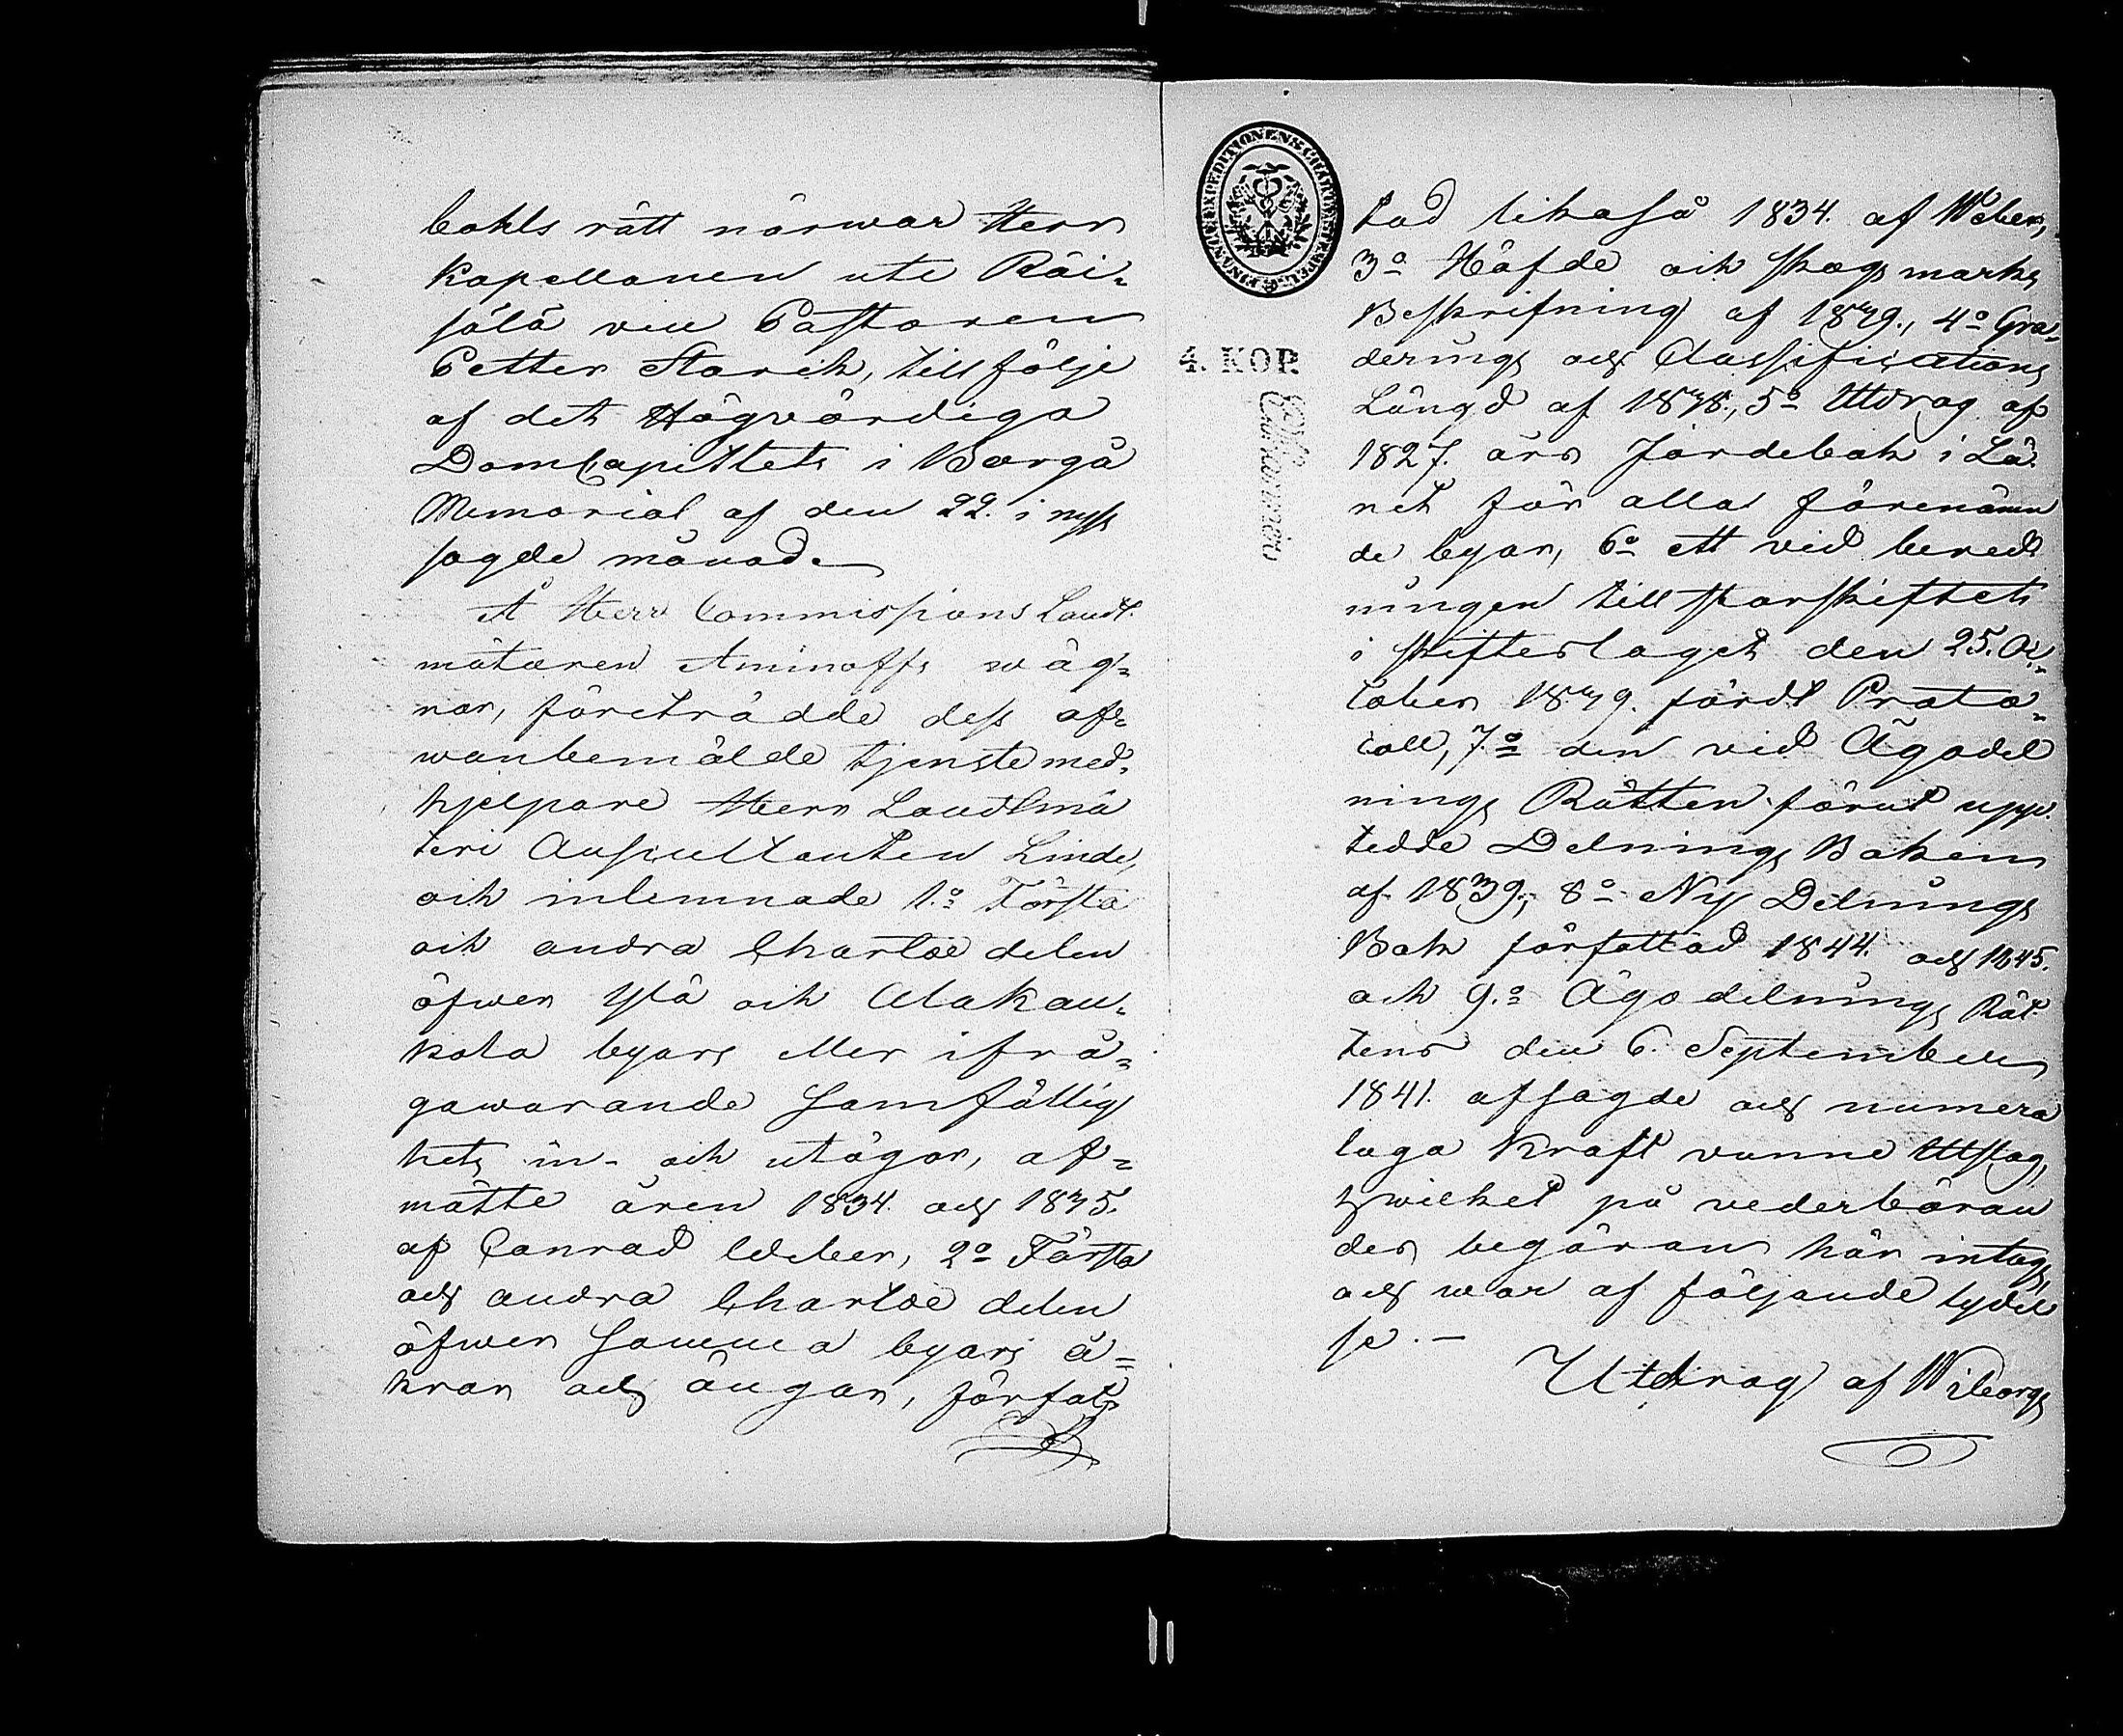 bohls rätt närwar Herr
Kapellanen uti Räi-
sälä vice Pastoren
Petter Starck, till följe
af det Högvördiga
DomCapitlets i Borgå
Memorial af den 22. i nyss
sagde månad.
Å Herr Commissions Landt-
mätaren Aminoffs väg-
nar, företrädde dess of-
wanbemälde tjenstemed-
hjelpare Herr Landtmä
teri Auscultanten Linde,
och inlemnade 1:o Första
och andra Chartæ delen
öfwer Ylä och Alakau-
kola byars eller ifrå-
gawarande Samfällig
hets in- och utägor, af-
mätte åren 1834. och 1835.
af Conrad Weber, 2:o Första
och andra Chartæ delen
öfwer Samma byars å-
krar och ängar, förfat-
FINANCE EXPEDITIONENS CHARTÆ STEMPEL
4. KOP.
tad likaså 1834. af Weber,
3:o Häfde och skogsmarks
Beskrifning af 1839., 4:o Gra-
derings och Classifications
Längd af 1838., 5:o Utdrag af
1827. års Jordebok i Lä
net för alla förenämn
de byar, 6:o ett vid bered
ningen till storskiftet
i skifteslaget den 25. Oc-
tober 1839. fördt Proto-
coll, 7:o den vid Ägodel
nings Rätten förut upp-
tedde Delnings Boken
af 1839., 8:o Ny Delnings
Bok författad 1844. och 1845.
och 9:o Ägodelnings Rät
tens den 6. September
1841. afsagde och numera
laga Kraft vunne Utslag,
hwilket på vederböran
des begäran här intogs
och war af följande lydel
se. —
Utdrag af Wiborgs